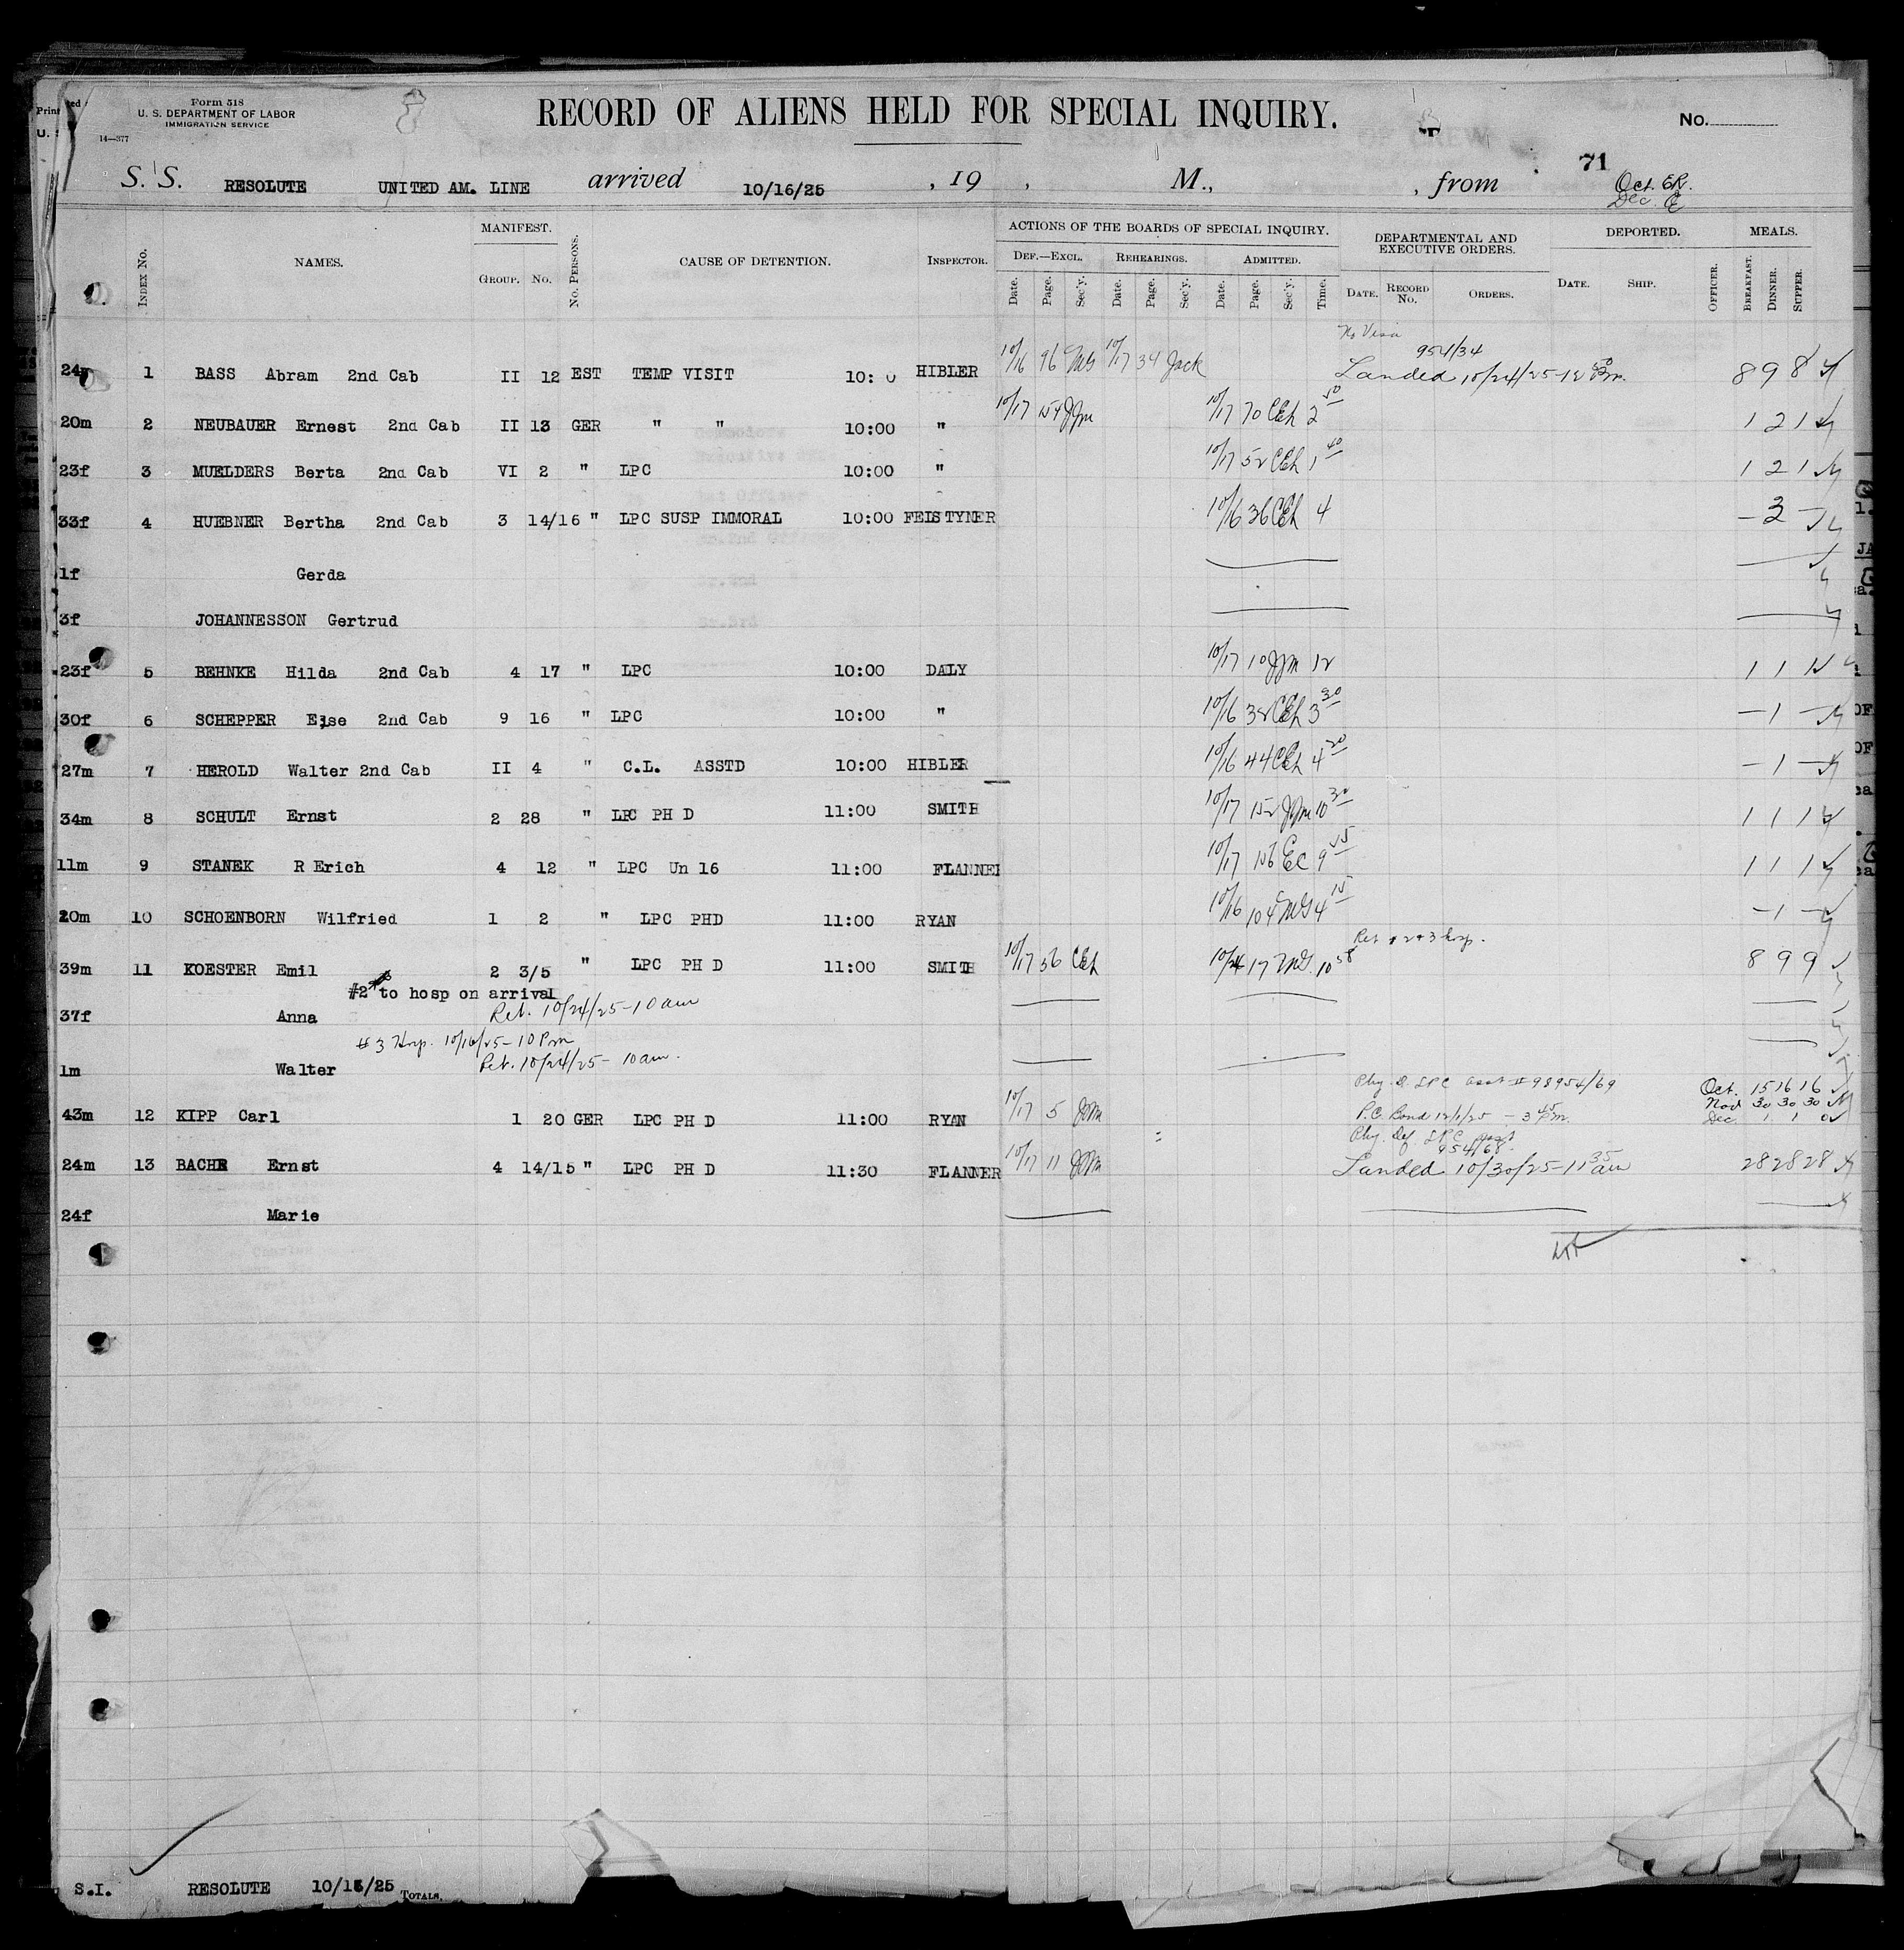 Form 518
U. S. DEPARTMENT OF LABOR
IMMIGRATION SERVICE
14—377
RECORD OF ALIENS HELD FOR SPECIAL INQUIRY.
No.
71
S. S. RESOLUTE UNITED AM. LINE arrived 10/16/25 , 19 , M., , from
Oct. ER.
Dec.
INDEX No. NAMES. MANIFEST. GROUP. NO. NO. PERSONS. CAUSE OF DETENTION. INSPECTOR.
ACTIONS OF THE BOARDS OF SPECIAL INQUIRY.
DEF.—EXCL. REHEARINGS. ADMITTED.
Date. Page. Sec'y. Date. Page. Sec'y. Date. Page. Sec'y. Time.
DEPARTMENTAL AND EXECUTIVE ORDERS.
DATE. RECORD NO. ORDERS.
DEPORTED.
DATE. SHIP. OFFICER.
MEALS.
BREAKFAST. DINNER. SUPPER.
No Visa
954/34
1 BASS Abram 2nd Cab II 12 EST TEMP VISIT HIBLER 10/16 96 10/17 34 Jack Landed 10/24/25 8 9 8
20m 2 NEUBAUER Ernest 2nd Cab II 13 GER " " 10:00 " 10/17 JJm 10/17 70 CEh 2 50 1 2 1
23f 3 MUELDERS Berta 2nd Cab VI 2 " LPC 10:00 " 10/17 52 CEh 1 40 1 2 1
33f 4 HUEBNER Bertha 2nd Cab 3 14/16 " LPC SUSP IMMORAL 10:00 FELSTYNER 10/16 36 CEh 4 — 3 —
1f Gerda
3f JOHANNESSON Gertrud
23f 5 BEHNKE Hilda 2nd Cab 4 17 " LPC 10:00 DALY 10/17 10 JJm 12 1 1 1
30f 6 SCHEPPER Else 2nd Cab 9 16 " LPC 10:00 " 10/16 38 CEh 3 30 — 1 —
27m 7 HEROLD Walter 2nd Cab II 4 " C.L. ASSTD 10:00 HIBLER 10/16 44 CEh 4 20 — 1 —
34m 8 SCHULT Ernst 2 28 " LPC PH D 11:00 SMITH 10/17 152 JJm 10 30 1 1 1
11m 9 STANEK R Erich 4 12 " LPC Un 16 11:00 FLANNER 10/17 EC 9 1 1 1
20m 10 SCHOENBORN Wilfried 1 2 " LPC PHD 11:00 RYAN 10/16 104 4 15 — 1 —
Ret # 2 & 3 hosp.
39m 11 KOESTER Emil 2 3/5 " LPC PH D 11:00 SMITH 10/17 56 CEh 10/24 17 8 9 9
#2 to hosp on arrival
37f Anna Ret. 10/24/25 - 10 am
#3 Hosp. 10/16/25 - 10 Pm
1m Walter Ret. 10/24/25 - 10 am.
Phy. D. LPC asst # 98954/69
Oct. 15 16 16
Nov 30 30 30
43m 12 KIPP Carl 1 20 GER LPC PH D 11:00 RYAN 10/17 5 JJm P.C. Bond 12/1/25 - 3 45 Pm. Dec 1 1 0
Phy. Def. LPC asst
954/68.
24m 13 BACHR Ernst 4 14/15 " LPC PH D 11:30 FLANNER 10/17 11 JJm Landed 10/30/25 - 11 35 am 28 28 28
24f Marie
S.I. RESOLUTE 10/16/25 TOTALS.